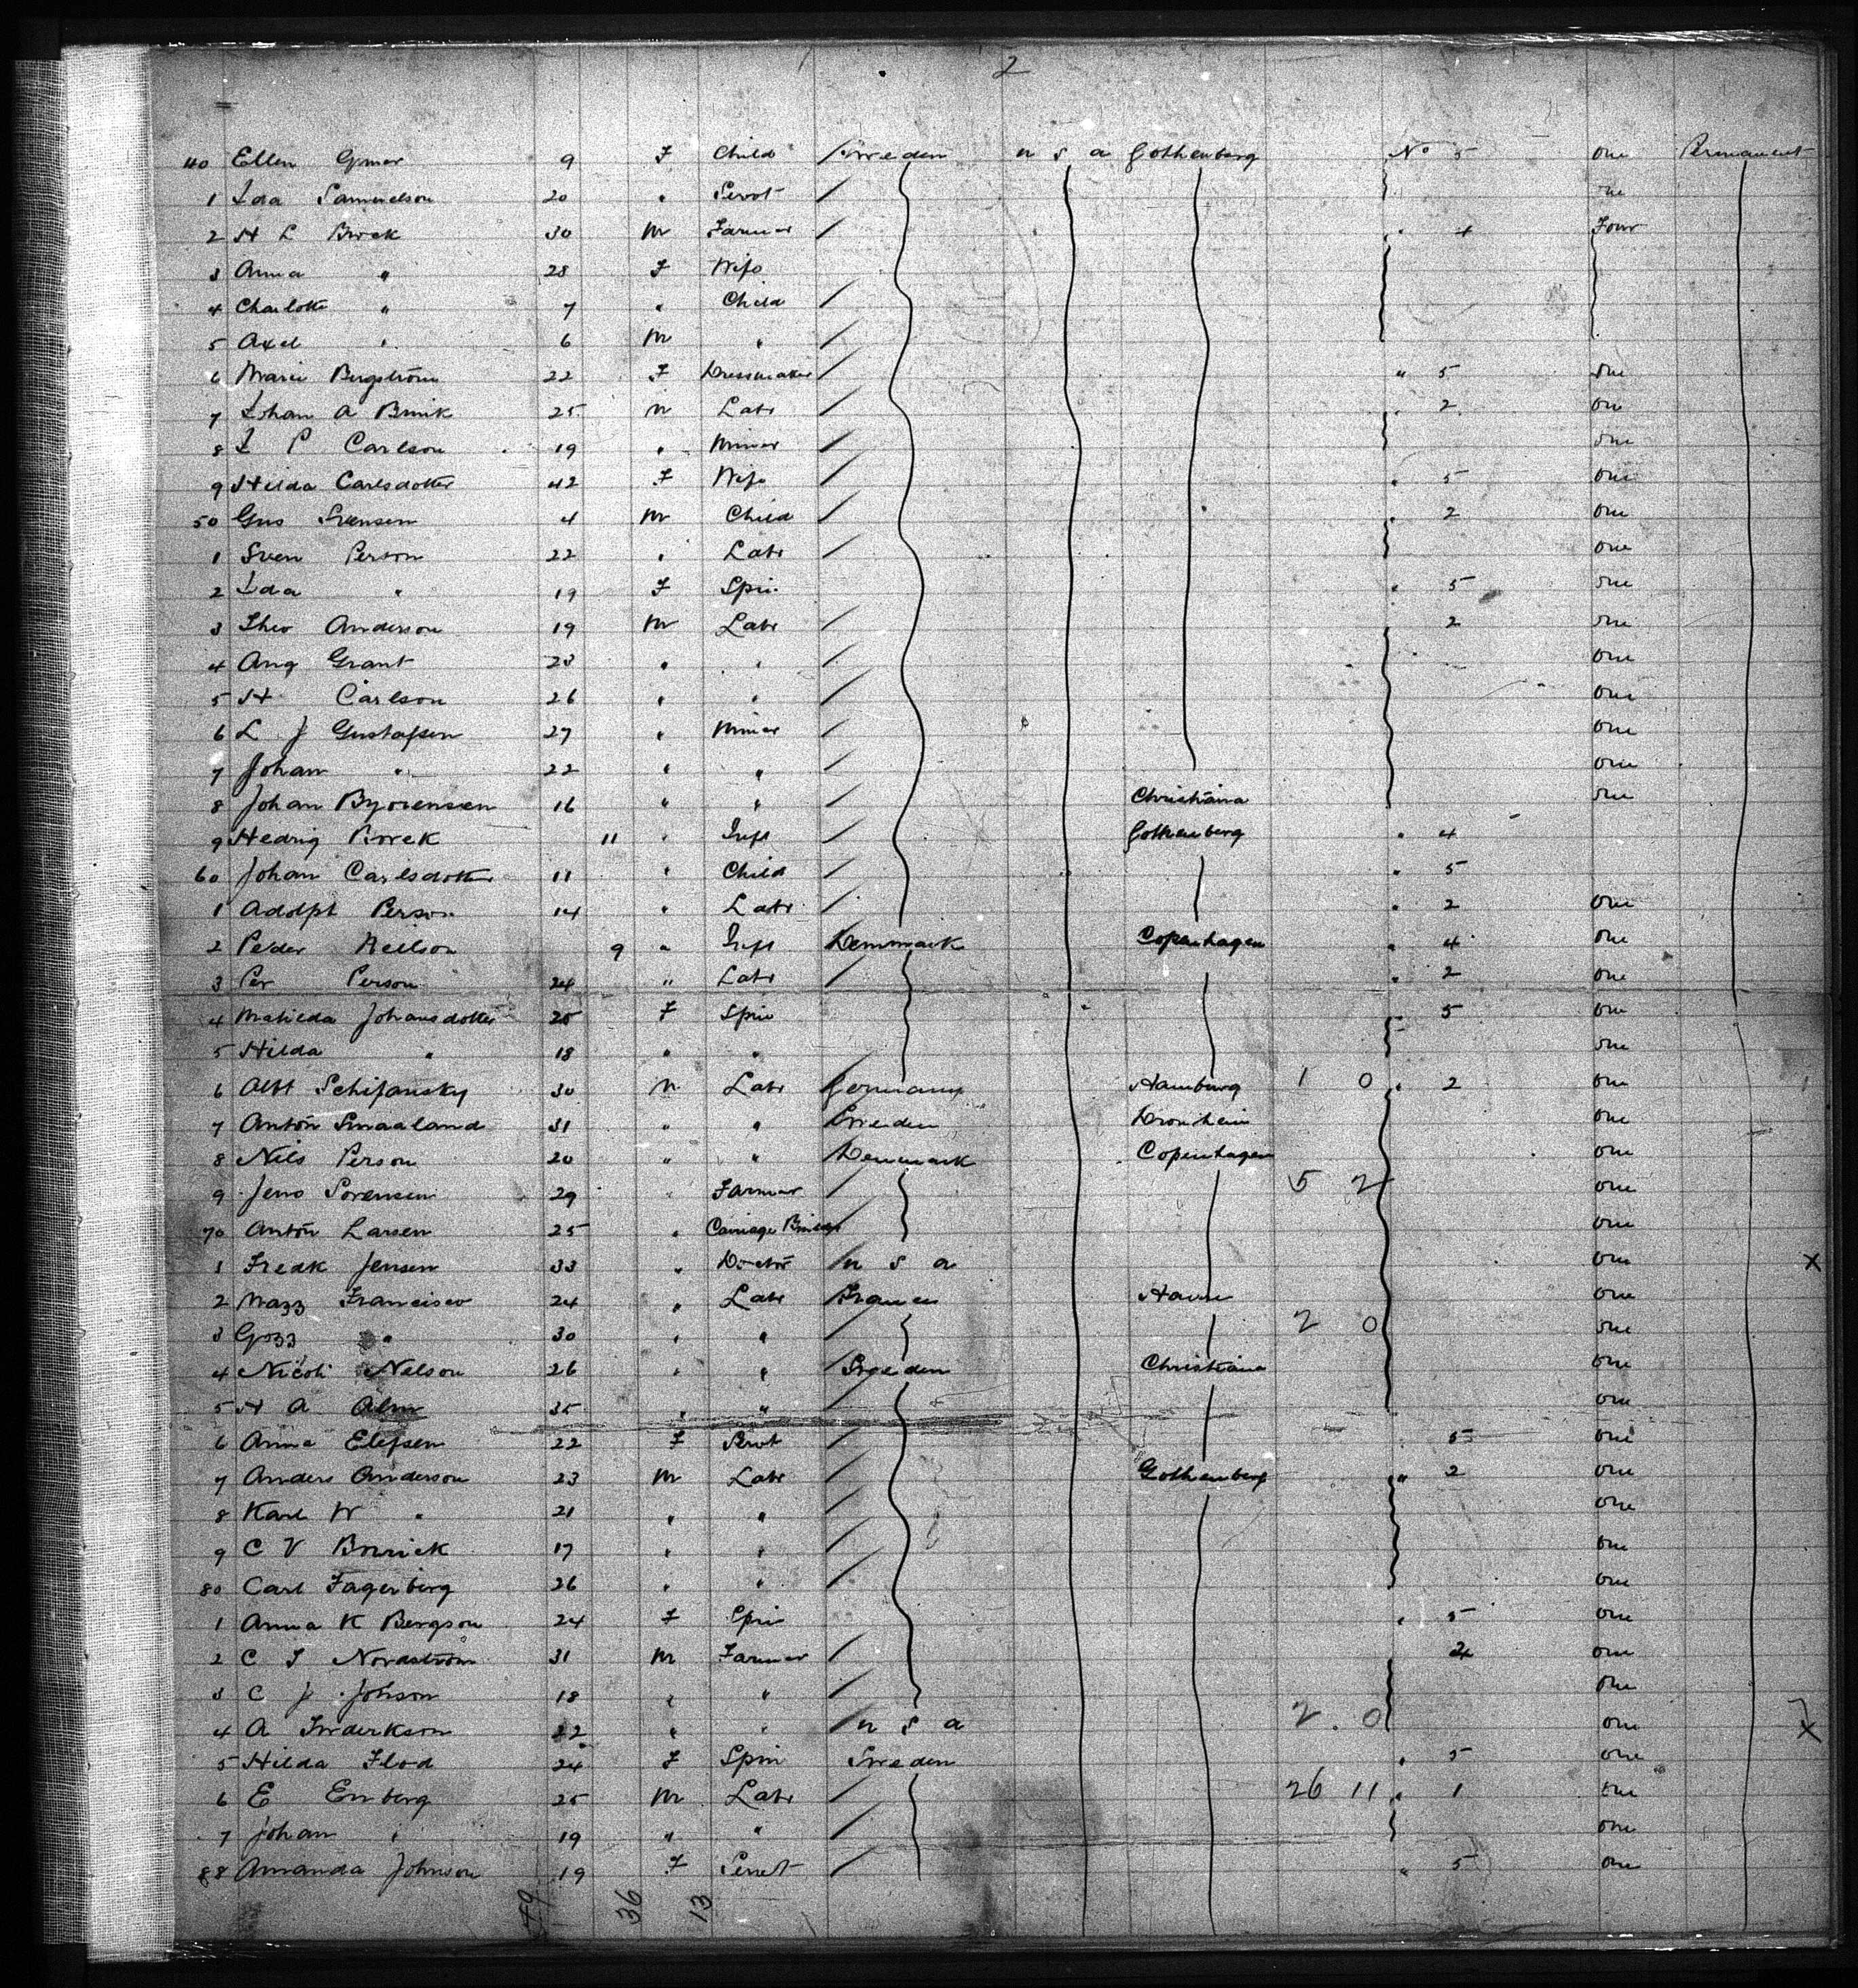 2
40 Ellen 9 F Child Sweden U S A Gothenberg No 5 one Permanent
1 Ida Samuelson 20 " Servt one
2 H L 30 M Farmer " 4 Four
3 Anna " 28 F Wife
4 Charlotte " 7 " Child
5 Axel " 6 M "
6 Marie Bergström 22 F Dressmaker " 5 one
7 Johan A 25 M Labr " 2 one
8 I P Carlson 19 " Miner one
9 Hilda Carlsdotter 42 F Wife " 5 one
50 Gus Svensen 4 M Child " 2 one
1 Sven Person 22 " Labr one
2 Ida " 19 F Spin " 5 one
3 Theo Anderson 19 M Labr 2 one
4 Aug Grant 23 " " one
5 H Carlson 26 " " one
6 L J Gustafsen 27 " Miner one
7 Johan " 22 " " one
8 Johan Byorensen 16 " " Christiana one
9 Hedvig 11 " Inft Gothenberg " 4
60 Johan Carlsdotter 11 " Child " 5
1 Adolph Person 14 " Labr " 2 one
2 Peder Neilson 9 " Inft Denmark Copenhagen " 4 one
3 Per Person 24 " Labr " 2 one
4 Matilda Johansdotter 25 F Spin " 5 one
5 Hilda " 18 " " one
6 Albt Schifansky 30 M Labr Germany Hamburg 1 0 " 2 one
7 Anton Smaaland 31 " " Sweden Dronheim one
8 Nils Person 20 " " Denmark Copenhagen one
9 Jens Sorensen 29 " Farmer 5 2 one
70 Anton Larsen 25 " Carriage Builder one
1 Fredk Jensen 33 " Doctor U S A one X
2 Mazz Francisco 24 " Labr France Havre one
3 Gozz " 30 " " 2 0 one
4 Nicoli Nelson 26 " " Sweden Christiana one
5 H A Alm 35 " " one
6 Anna Elefsen 22 F Servt 5 one
7 Anders Anderson 23 M Labr Gothenberg " 2 one
8 Karl W " 21 " " one
9 C V 17 " " one
80 Carl Fagerberg 26 " " one
1 Anna K Bergson 24 F Spin " 5 one
2 C J Nordström 31 M Farmer one
3 C J Johson 18 " " one
4 A 22 " " U S A 2 0 one X
5 Hilda Flod 24 F Spin Sweden " 5 one
6 E Enberg 25 M Labr 26 11 " 1 one
7 Johan " 19 " " one
88 Amanda Johnson 19 F Servt " 5 one
49 36 13